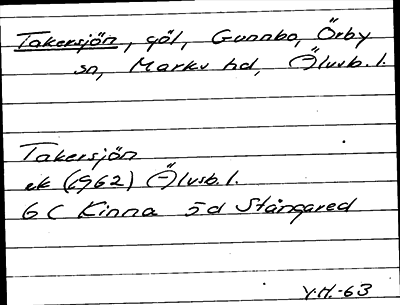 Takersjön, göl, Gunnbo, Örby
sn, Marks hd, Älvsb. l.
Takersjön
ek (1962) Älvsb. l.
6 C Kinna 5d Stångared
Y.H.-63